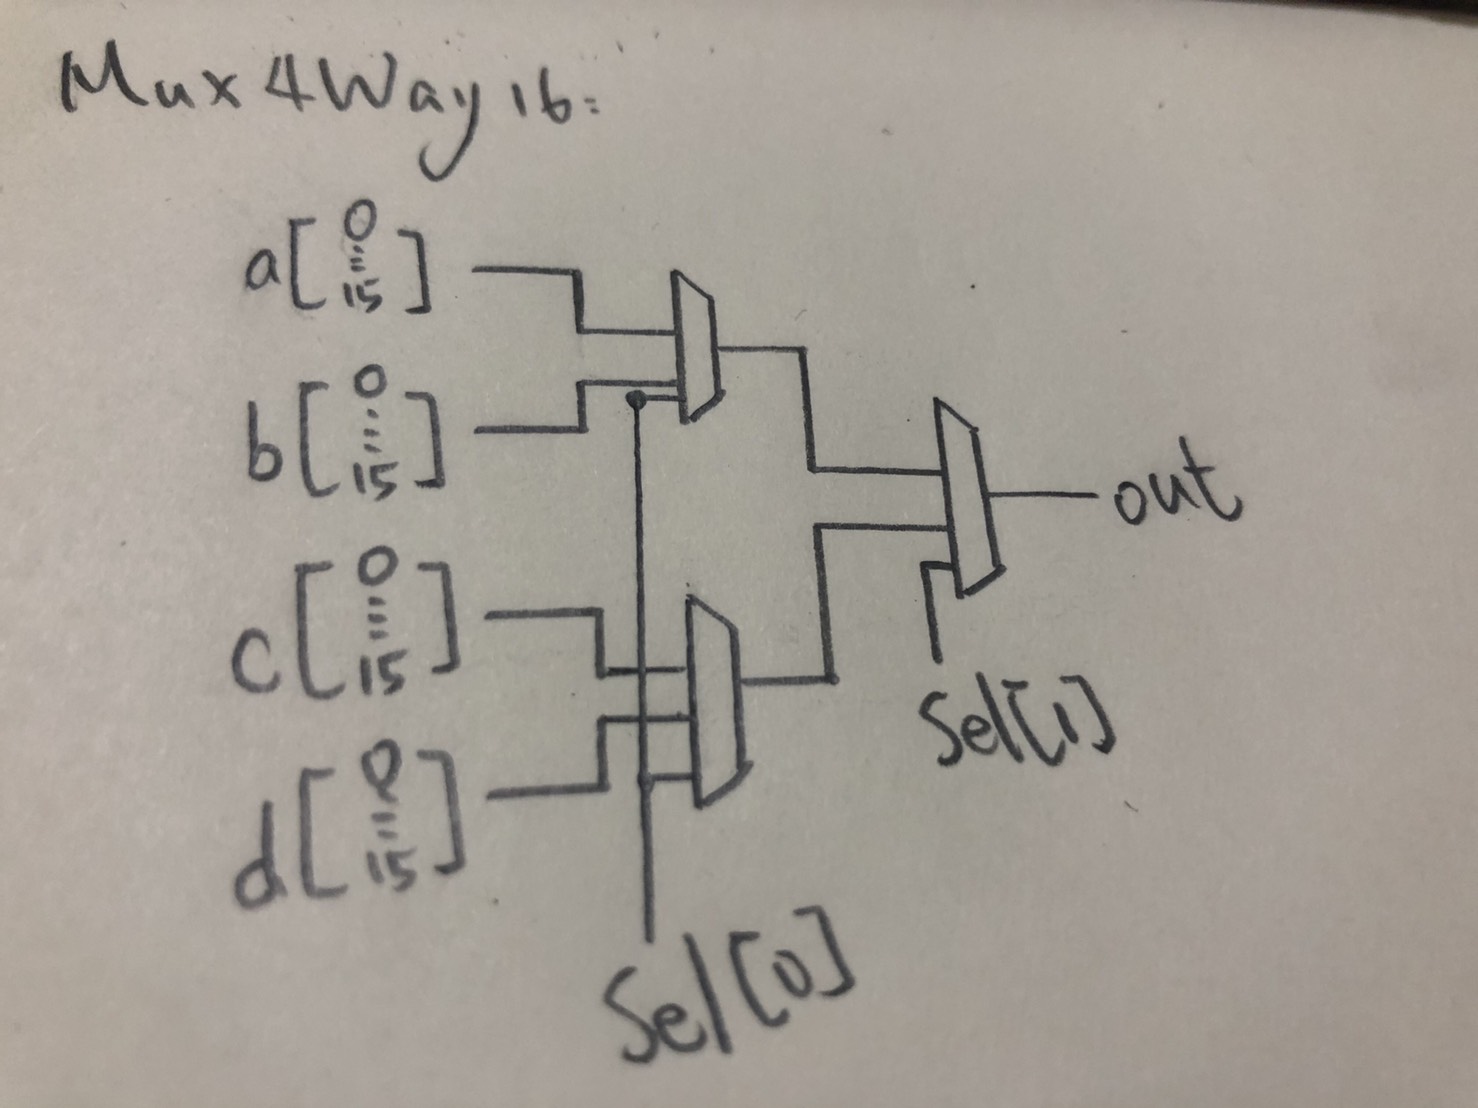 Mux 4Way 16:
a[0...15]
b[0...15]
c[0...15]
d[0...15]
out
Sel[1]
Sel[0]